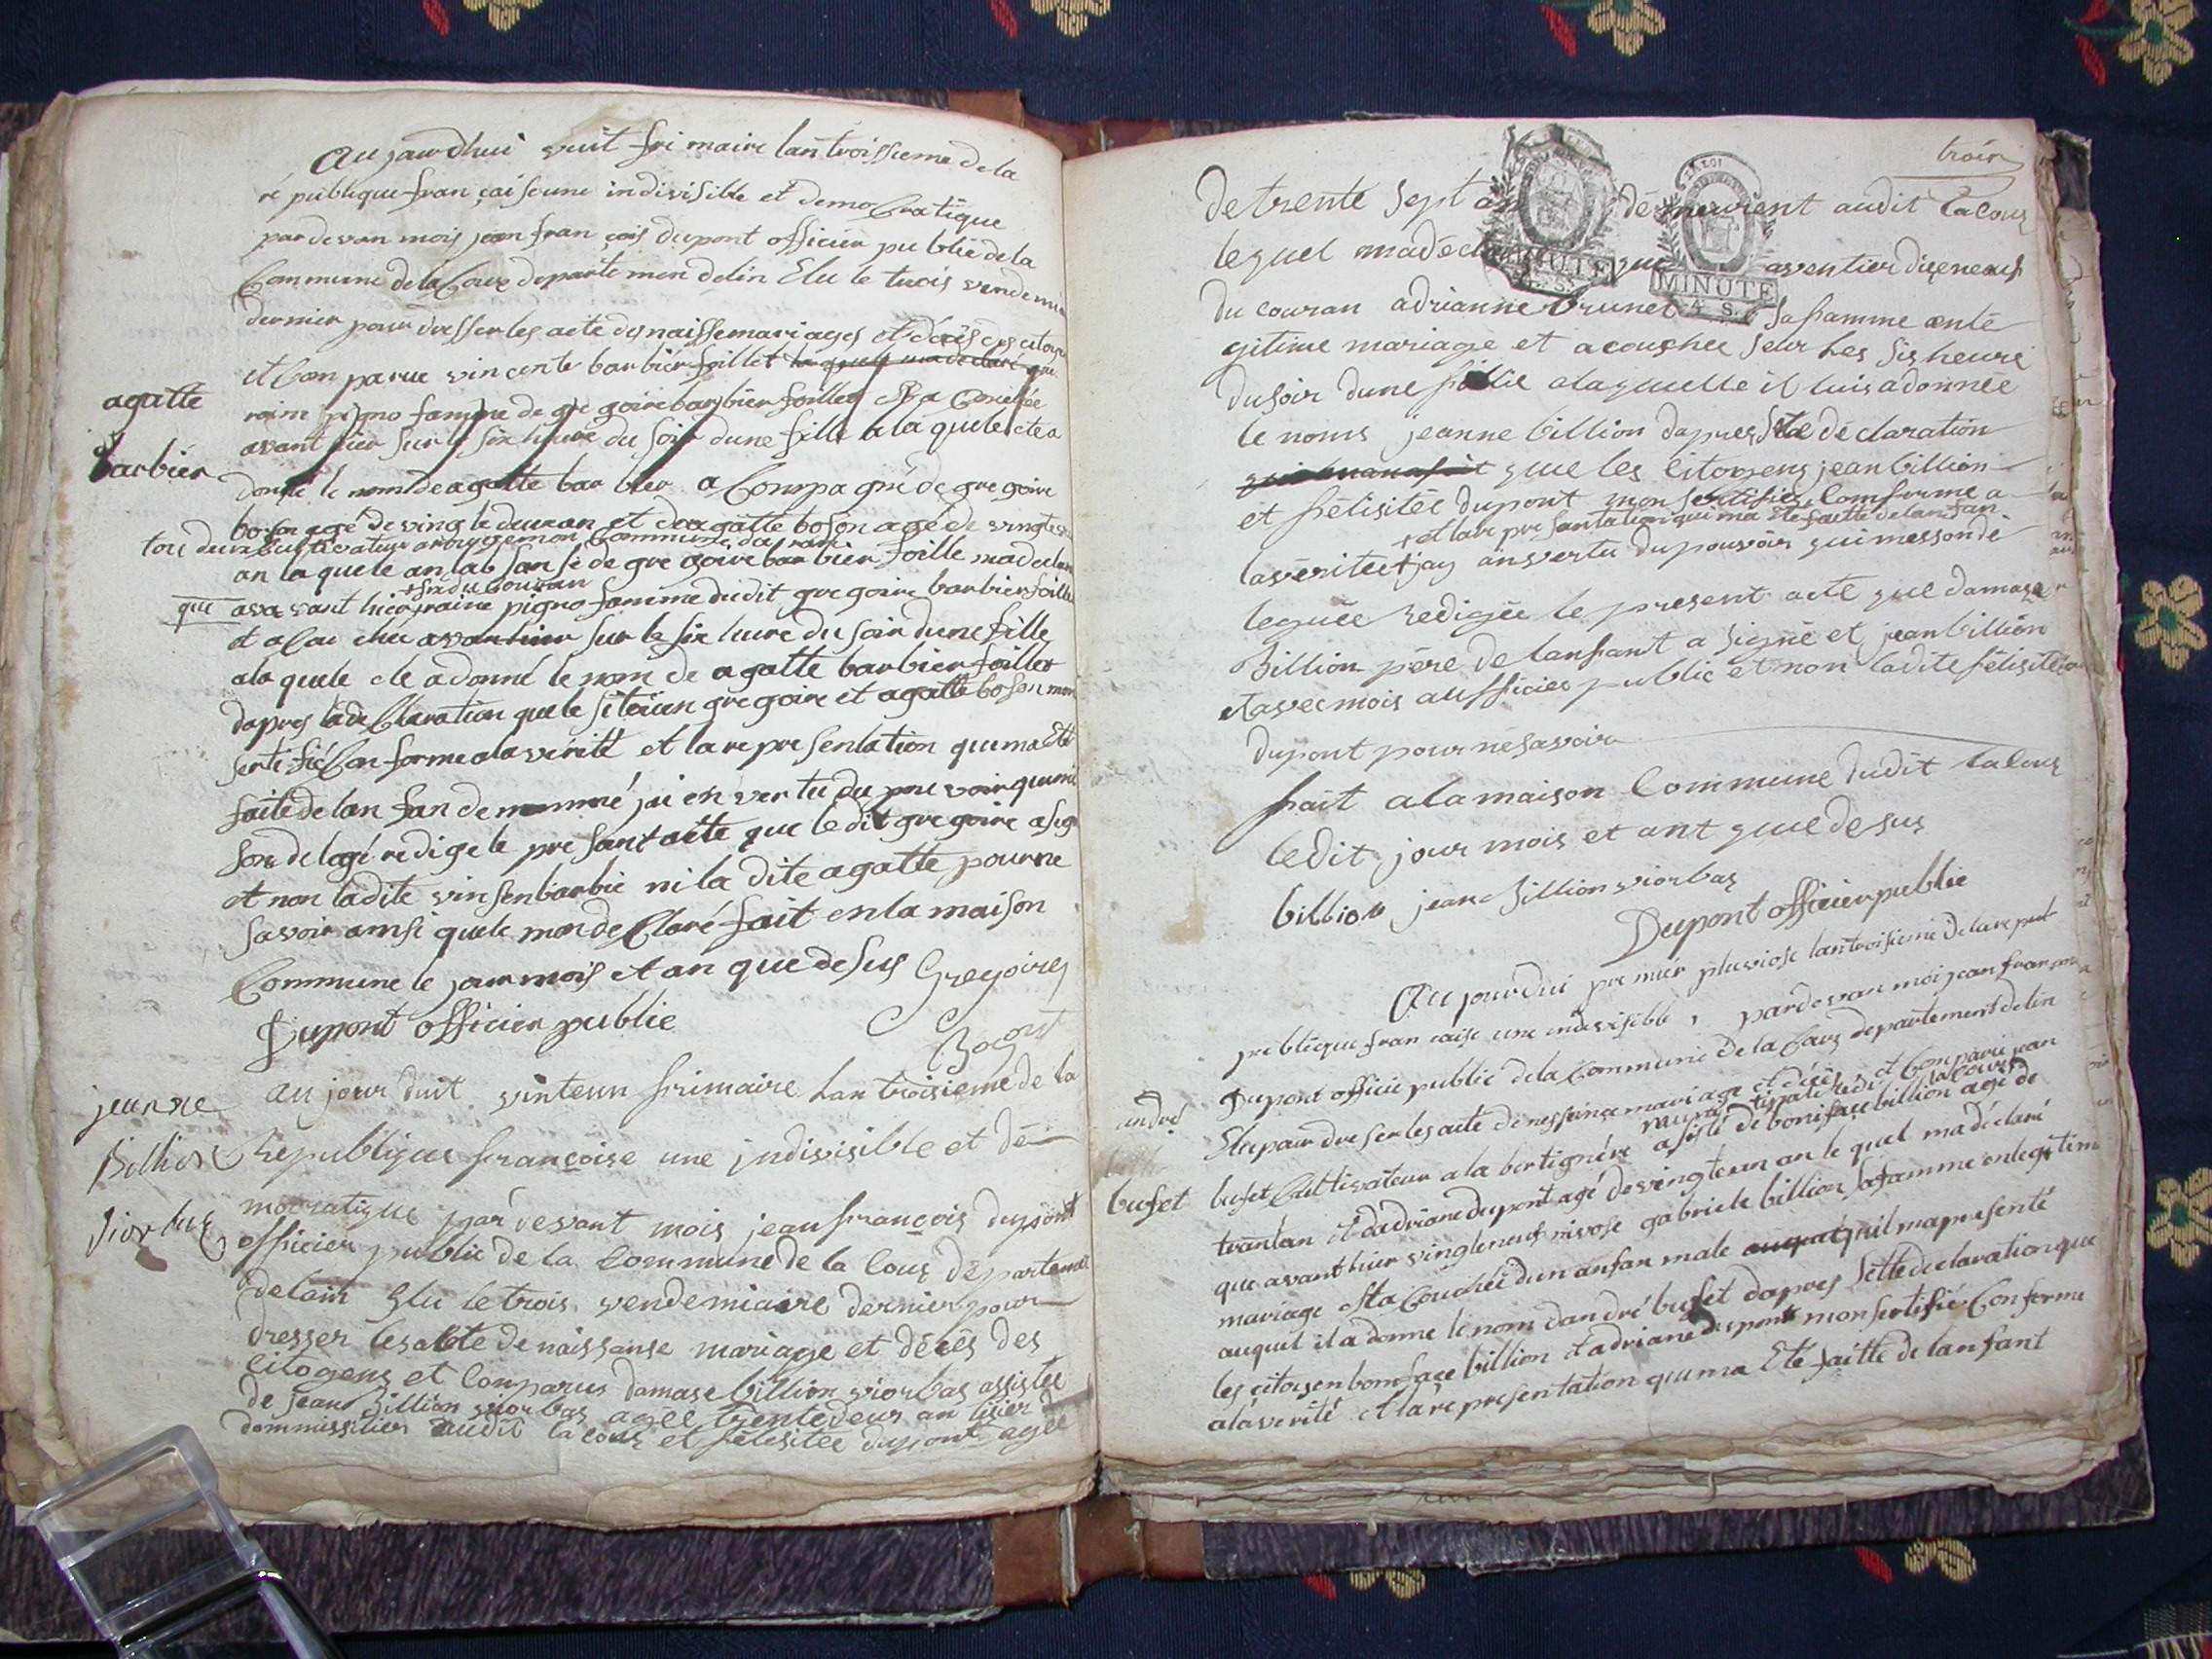 Aujourdhui vuit frimaire lan troissieme de la
ré publique fran çaise une indivisible et democratique
par devan mois jean fran çois dupont officier publie de la
Commune de la Coux departe men delin Elu le trois vendemi
dernier pour dresser les acte de naisse mariages et décès des citoye
et Com parue vincente barbier foillet la quele ma declaré que
pigno famme de gre goire barbier foillet Et a Couchée
avant hier sur le six heure du soir dune fille a la quele ele a
agatte
barbier
donné le nom de agatte bar bier a Compa gné de gre goire
boson agé de vingt deux an et de agatte boson agé de vingt
tou deux Cultivateur Commune
an la quele an lab san se de gre goire bar bier foille ma declaré
+ six du Couran
que ava vant hier raine pigno famme dudit gre goire barbier foille
et a Cou chée avanthier sur le six heure du soir dune fille
a la quele ele a donné le nom de agatte barbier foillet
dapres la de Claration que le sitoien gre goire et agatte boson mon
serti fié Con forme a la vérité et la re pre sentation qui ma Eté
faite de lan fan de nommé jai en ver tu du pou voir qui mi
son de lagé redige le pre sant acte que le dit gre goire a sig
et non ladite vinsen barbié ni la dite agatte pour ne
savoir ainsi quele mon de Claré fait en la maison
Commune le jour mois et an que de sus Gregoire
Boson
Dupont officier publie
jeanne
Billion
viorbas
au jour duit vinteun frimaire lan troisieme de la
Republique françoise une jndivisible et dé
mocratique par devant mois jean françois dupont
officier public de la Commune de la Coux département
delain Elu le trois vendemiaire dernier pour
dresser les acte de naissanse mariage et décès des
Citoyens et Comparus damase billion viorbas assistée
de jean Billion viorbas agée trente deux an
dommissilier audit la Coux et félisitée dupont agée
trois
de trente sept an démeurent audit la Coux
lequel ma déclaré que aventier dizeneuf
MINUTE
MINUTE
4. S.
du couran adrianne brunet sa famme ente
gitime mariage et acouchée seur les sis heure
du soir dune fillie a laquelle il luis a donnée
le noms jeanne billion dapres sete déclaration
que les Citoyens jean billion
et félisitée dupont mon sertifiez Comforme a
+ et lare pre santation qui ma Eté faitte de lanfan
la vérité + jay an vertu du pouvoir qui messon dé
leguée redigée le present acte que damase
Billion père de lanfant a signé et jean billion
et avec mois aufficier public et non ladite félisitée
dupont pour né savoir
fait a la maison Commune dudit la Coux
ledit jour mois et ant que de sus
billion jean Billion viorbas
Dupont officier publie
Au jour dui pre mier pluviose lan troisieme de la re pu
publicque fran caise une indivisible, par devan moi jean françois
Dupont officie public de la Commune de la Coux departement delin
andré
bufet
Elu pour dre ser les acte de nessence mariage et décé et Comparu jean
bufet Cultivateur a la bertignére asisté de boniface billion agé de
trantan et dadriane dupont agé de vingt eun an le quel ma déclaré
que avant hier vingteneuf nivose gabriele billion sa famme en legitime
mariage Esta Couchée dun anfan male quil ma présenté
auquil il a donné le nom dandré bufet dapres sette declaration que
les citoyen boniface billion et adriane dupont mon sertifié Con forme
a la verité et la re presentation qui ma Eté faitte de lanfant